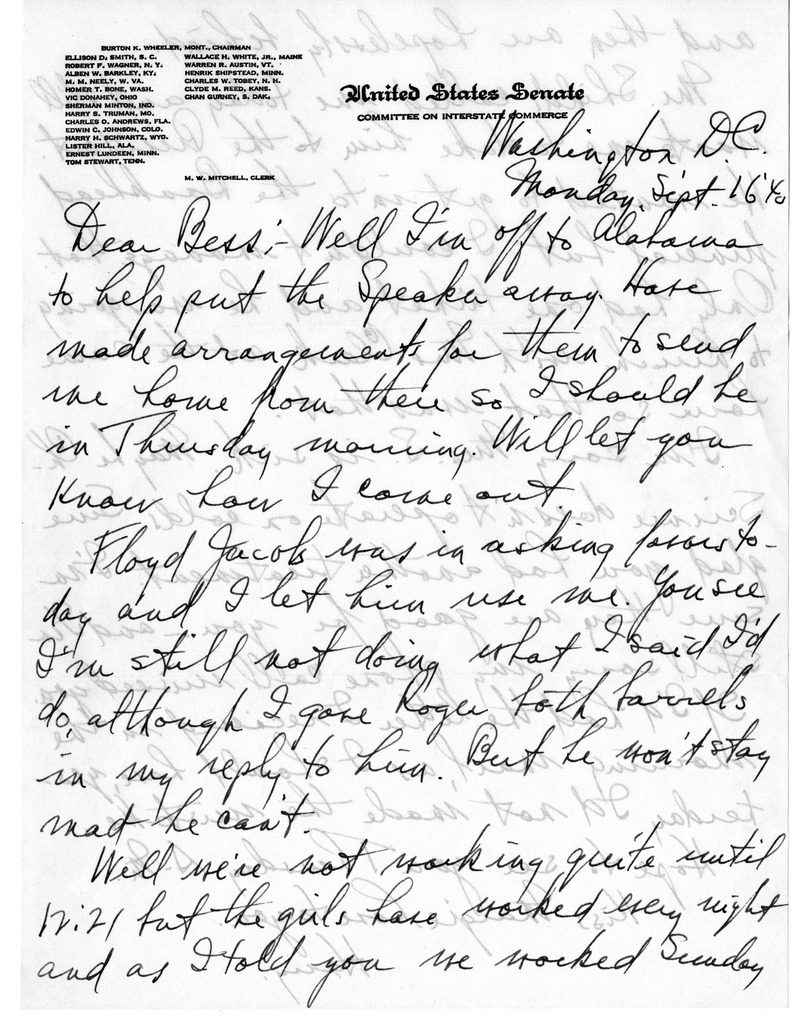 BURTON K. WHEELER, MONT., CHAIRMAN
ELLISON D. SMITH, S. C.
ROBERT F. WAGNER, N. Y.
ALBEN W. BARKLEY, KY.
M. M. NEELY, W. VA.
HOMER T. BONE, WASH.
VIC DONAHEY, OHIO
SHERMAN MINTON, IND.
HARRY S. TRUMAN, MO.
CHARLES O. ANDREWS, FLA.
EDWIN C. JOHNSON, COLO.
HARRY H. SCHWARTZ, WYO.
LISTER HILL, ALA.
ERNEST LUNDEEN, MINN.
TOM STEWART, TENN.
WALLACE H. WHITE, JR., MAINE
WARREN R. AUSTIN, VT.
HENRIK SHIPSTEAD, MINN.
CHARLES W. TOBEY, N. H.
CLYDE M. REED, KANS.
CHAN GURNEY, S. DAK.
M. W. MITCHELL, CLERK
United States Senate
COMMITTEE ON INTERSTATE COMMERCE
Washington D.C.
Monday, Sept. 16 '40
Dear Bess:- Well I'm off to Alabama
to help put the Speaker away. Have
made arrangements for them to send
me home from there so I should be
in Thursday morning. Will let you
know how I come out.
Floyd Jacob was in asking favors to-
day and I let him use me. You see
I'm still not doing what I said I'd
do, although I gave Roger both barrels
in my reply to him. But he won't stay
mad he can't.
Well we're not working quite until
12:21 but the girls have worked every night
and as I told you we worked Sunday